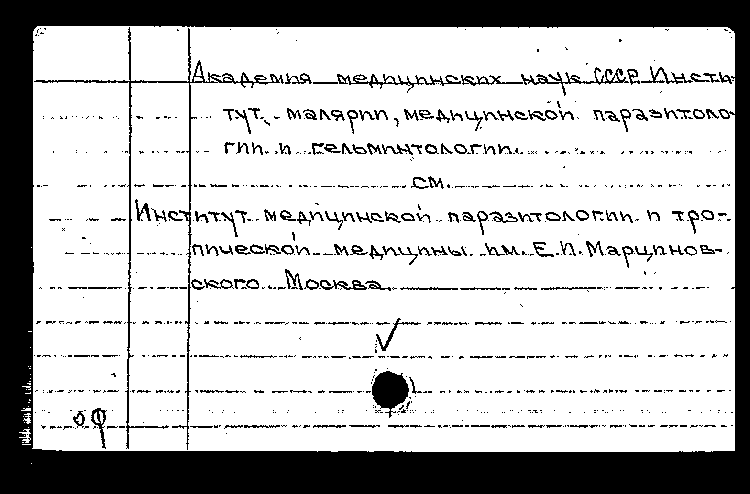 Академия медицинских наук СССР Инсти-
тут малярии, медицинской паразитоло-
гии и гельминтологии.
см.
Институт медицинской паразитологии и тро-
пической медицины им. Е.И. Марцинов-
ского. Москва.
оф